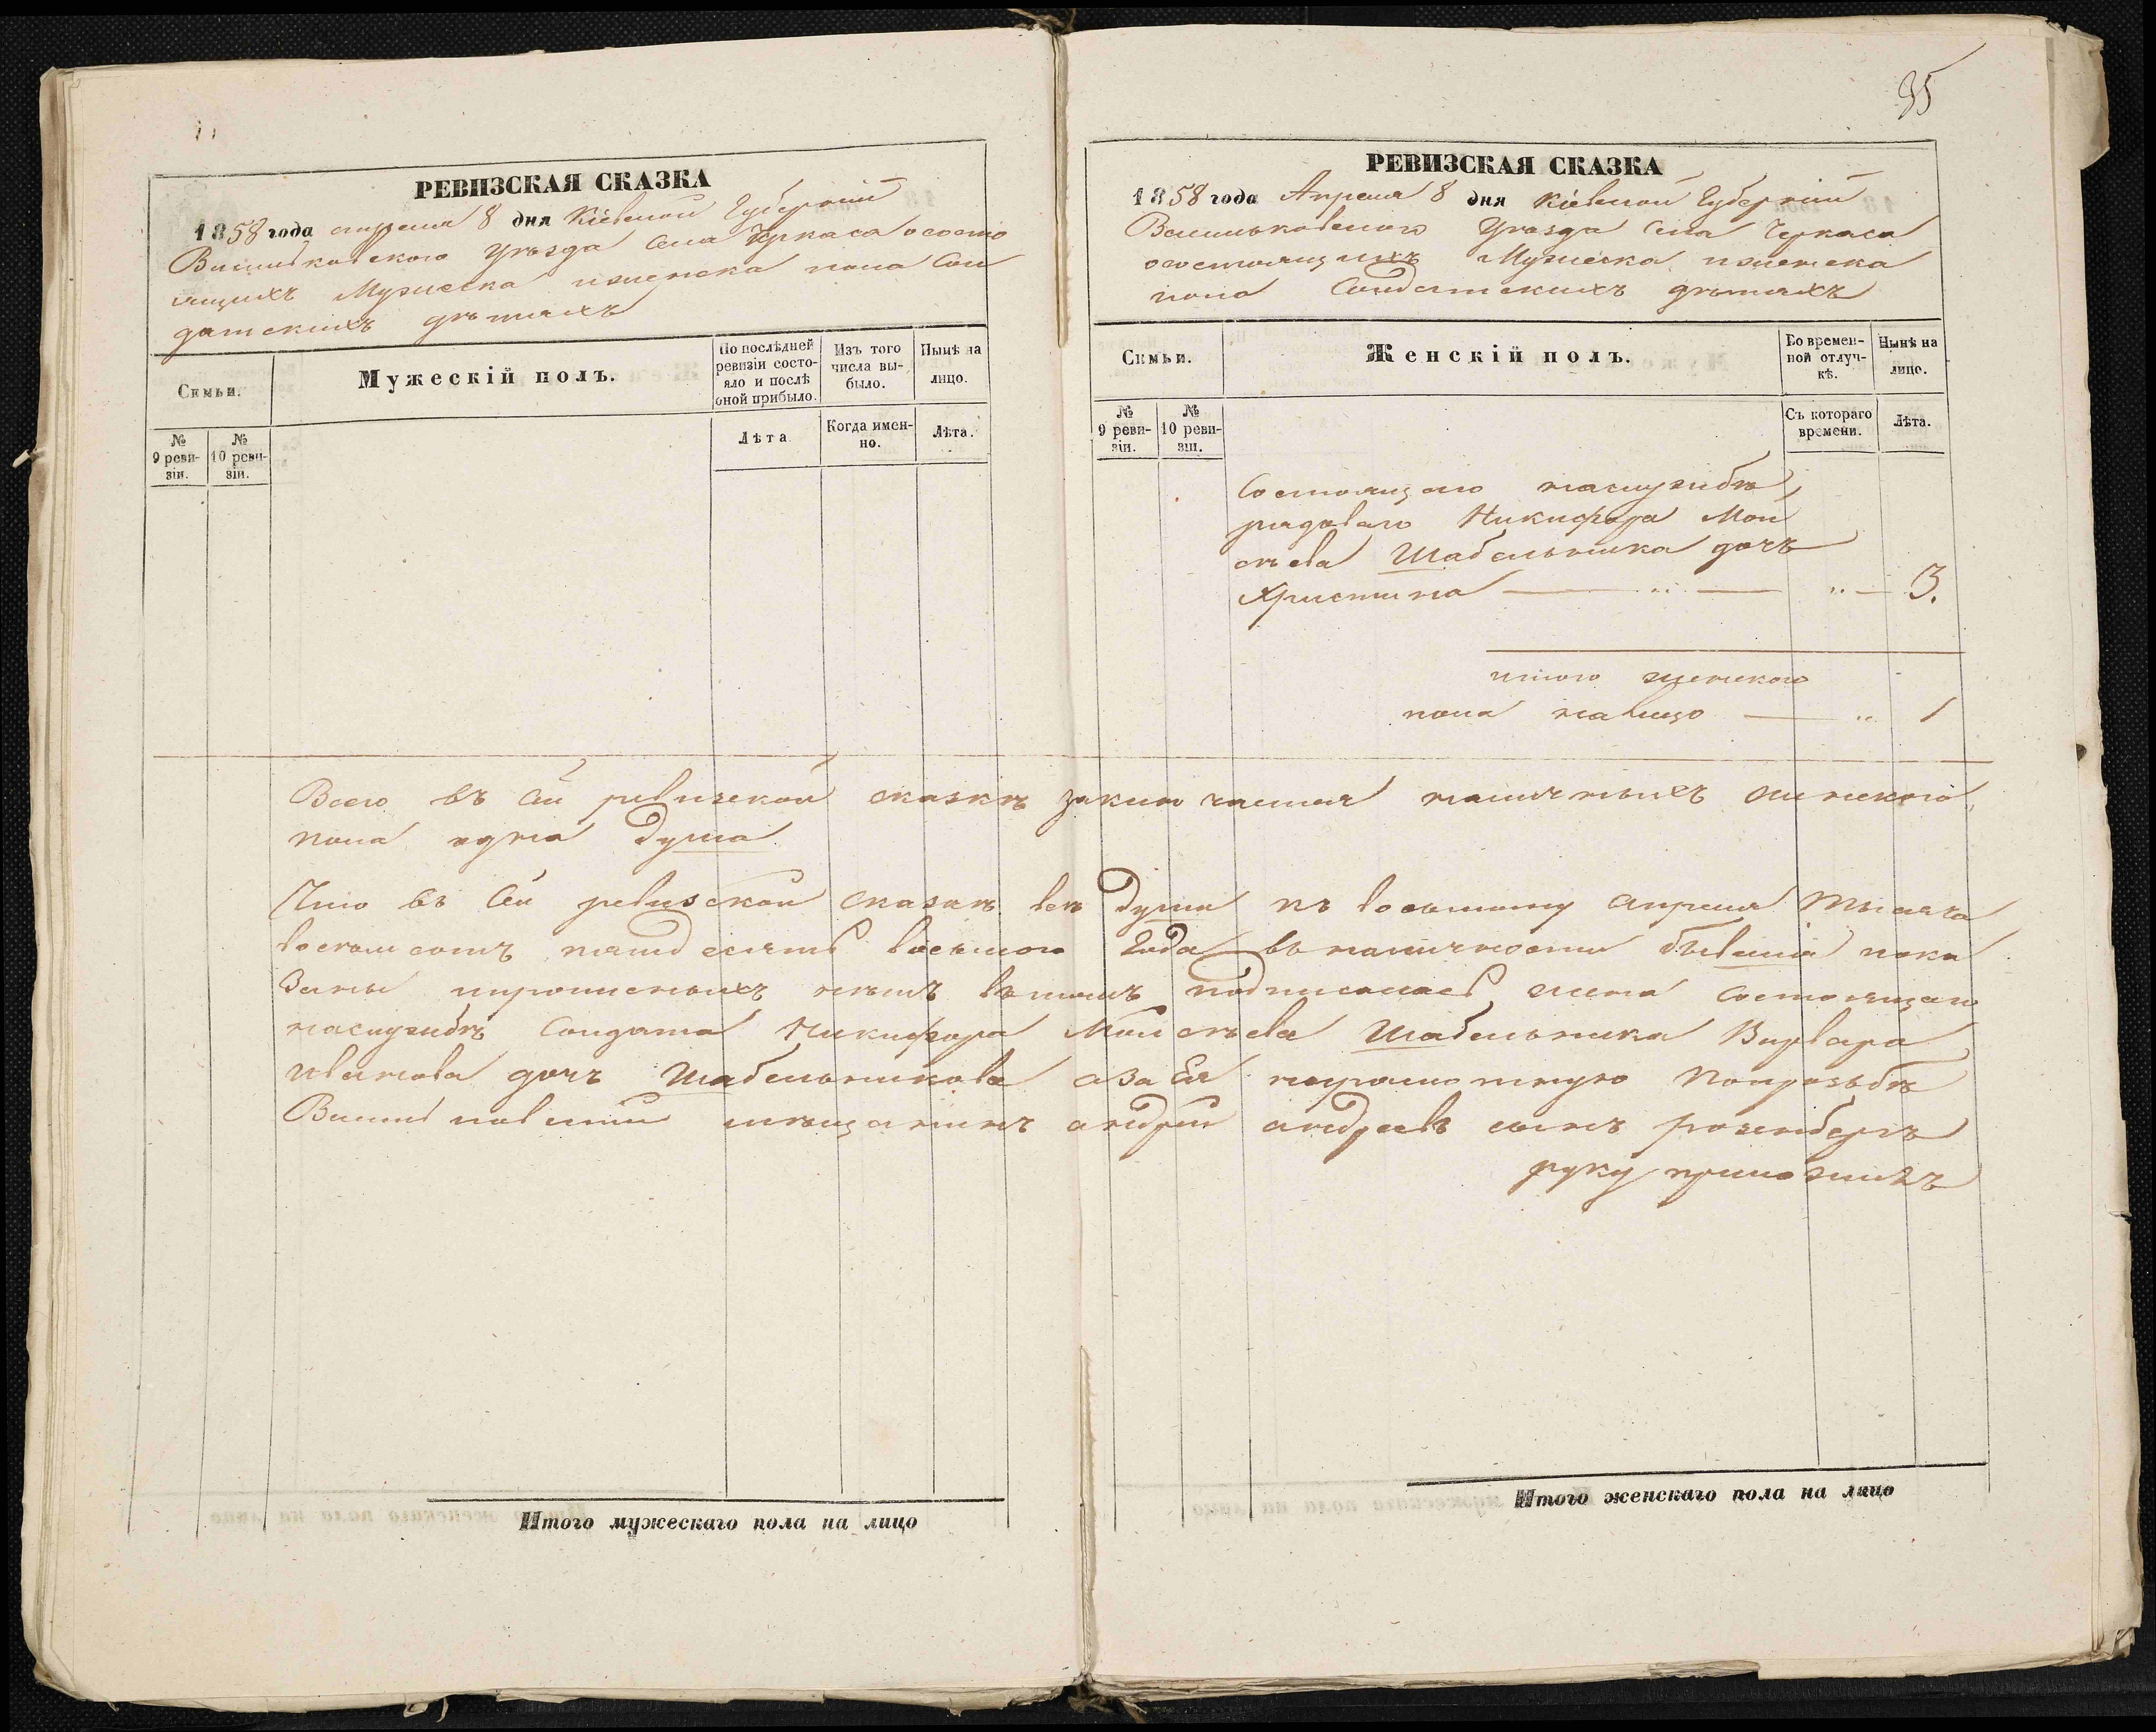 РЕВИЗСКАЯ СКАЗКА
1858 года апреля 8 дня Кіевской Губерніи
Васильковского Уѣзда Села Черкаса ососто
ящихъ Мужеска иженска пола Сол
датскихъ дѣтяхъ
Симьи.
Мужескій полъ.
По послѣдней ревизіи состояло и послѣ оной прибыло.
Изъ того числа выбыло.
Нынѣ на лицо.
№ 9 ревизіи.
№ 10 ревизіи.
Лѣта
Когда именно.
Лѣта.
Итого мужескаго пола на лицо
35
РЕВИЗСКАЯ СКАЗКА
1858 года Апреля 8 дня Кіевской Губерніи
Васильковского Уѣзда Села Черкаса
осостоящихъ Мужеска иженска
пола Солдатскихъ дѣтяхъ
Симьи.
Женскій полъ.
Во временной отлучкѣ.
Нынѣ на лицо.
№ 9 ревизіи.
№ 10 ревизіи.
Съ котораго времени.
Лѣта.
Состоящаго наслужбѣ,
рядоваго Никифора Мои
сѣева Шабельника дочь
Христина — „ — „ — 3.
итого женского
пола налицо — „ 1
Всего въ сей ревизской сказкѣ заключается наличныхъ женского
пола одна душа.
Что въ сей ревизской сказкѣ всѣ души къ восьмому апреля тысяча
восемь сотъ пятдесятъ восьмого года въ наличности бывшіе пока
заны ипрописныхъ нѣтъ втомъ подписалась жена состоящаго
наслужбѣ Солдата Никифора Моисѣева Шабельника Варвара
иванова дочь Шабельникова азаея неграмотную попрозьбѣ
Васильковский мѣщанинъ андрей андреевъ сынъ розенбергъ
руку приложилъ
Итого женскаго пола на лицо